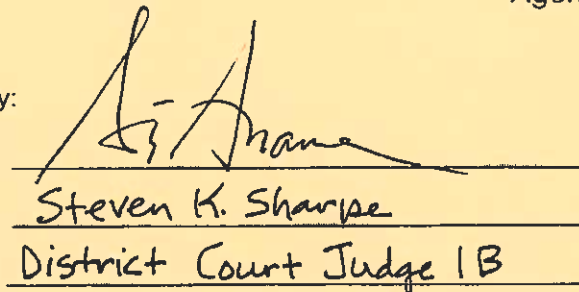 Agen
y:
Steven K. Sharpe
District Court Judge 1B